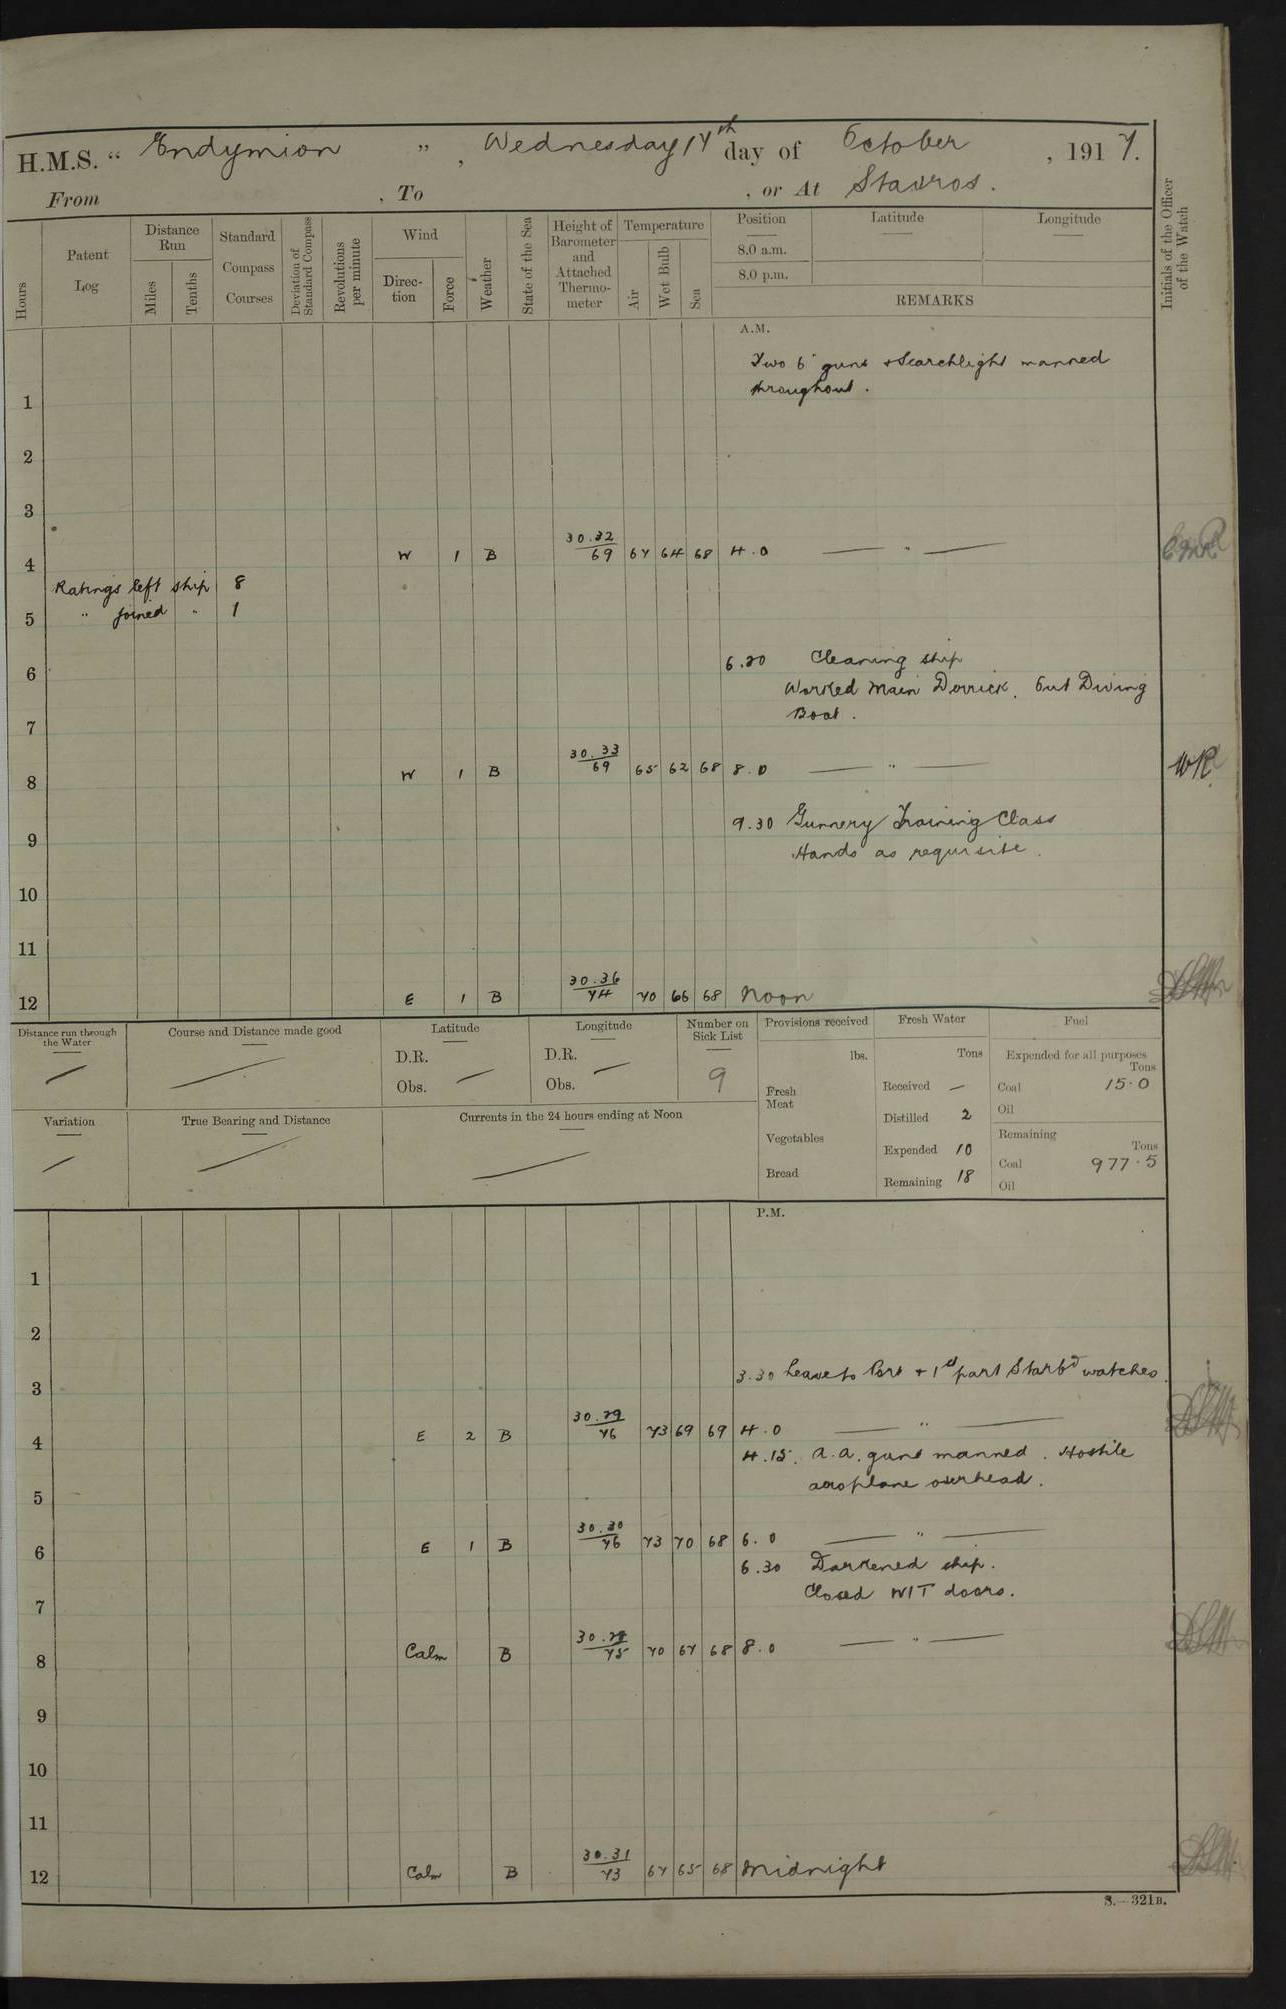 H.M.S. " Endymion " , Wednesday 17th day of October , 1917.
From , To , or At Stavros .
Hours
Patent Log
Distance Run
Miles
Tenths
Standard Compass Courses
Deviation of Standard Compass
Revolutions per minute
Wind
Direction
Force
Weather
State of the Sea
Height of Barometer and Attached Thermometer
Temperature
Air
Wet Bulb
Sea
Position
8.0 a.m.
8.0 p.m.
Latitude
Longitude
REMARKS
Initials of the Officer of the Watch
A.M.
Two 6" guns + Searchlight manned
throughout .
1
2
3
4 W 1 B 30.32/69 67 64 68 4.0 — " —
Ratings left ship 8
" joined " 1
5
6.20 Cleaning ship
6
Worked Main Derrick. Out Diving
Boat .
7
8 W 1 B 30.33/69 65 62 68 8.0 — " — WR
9.30 Gunnery Training Class
Hands as requisite .
9
10
11
12 E 1 B 30.36/74 70 66 68 Noon
Distance run through the Water —
Course and Distance made good —
Latitude
D.R.
Obs. —
Longitude
D.R.
Obs. —
Number on Sick List
9
Provisions received
lbs.
Fresh Meat
Vegetables
Bread
Fresh Water
Tons
Received —
Distilled 2
Expended 10
Remaining 18
Fuel
Expended for all purposes
Tons
Coal 15.0
Oil
Remaining
Tons
Coal 977.5
Oil
Variation —
True Bearing and Distance —
Currents in the 24 hours ending at Noon —
P.M.
1
2
3.30 Leave to Port + 1st part Starbd watches.
3
4 E 2 B 30.29/76 73 69 69 4.0 — " —
4.15. A.A. guns manned . Hostile
aeroplane overhead .
5
6 E 1 B 30.30/76 73 70 68 6.0 — " —
6.30 Darkened ship.
Closed W/T doors.
7
8 Calm B 30. /75 70 67 68 8.0 — " —
9
10
11
12 Calm B 30.31/73 67 65 68 Midnight
S.—321B.